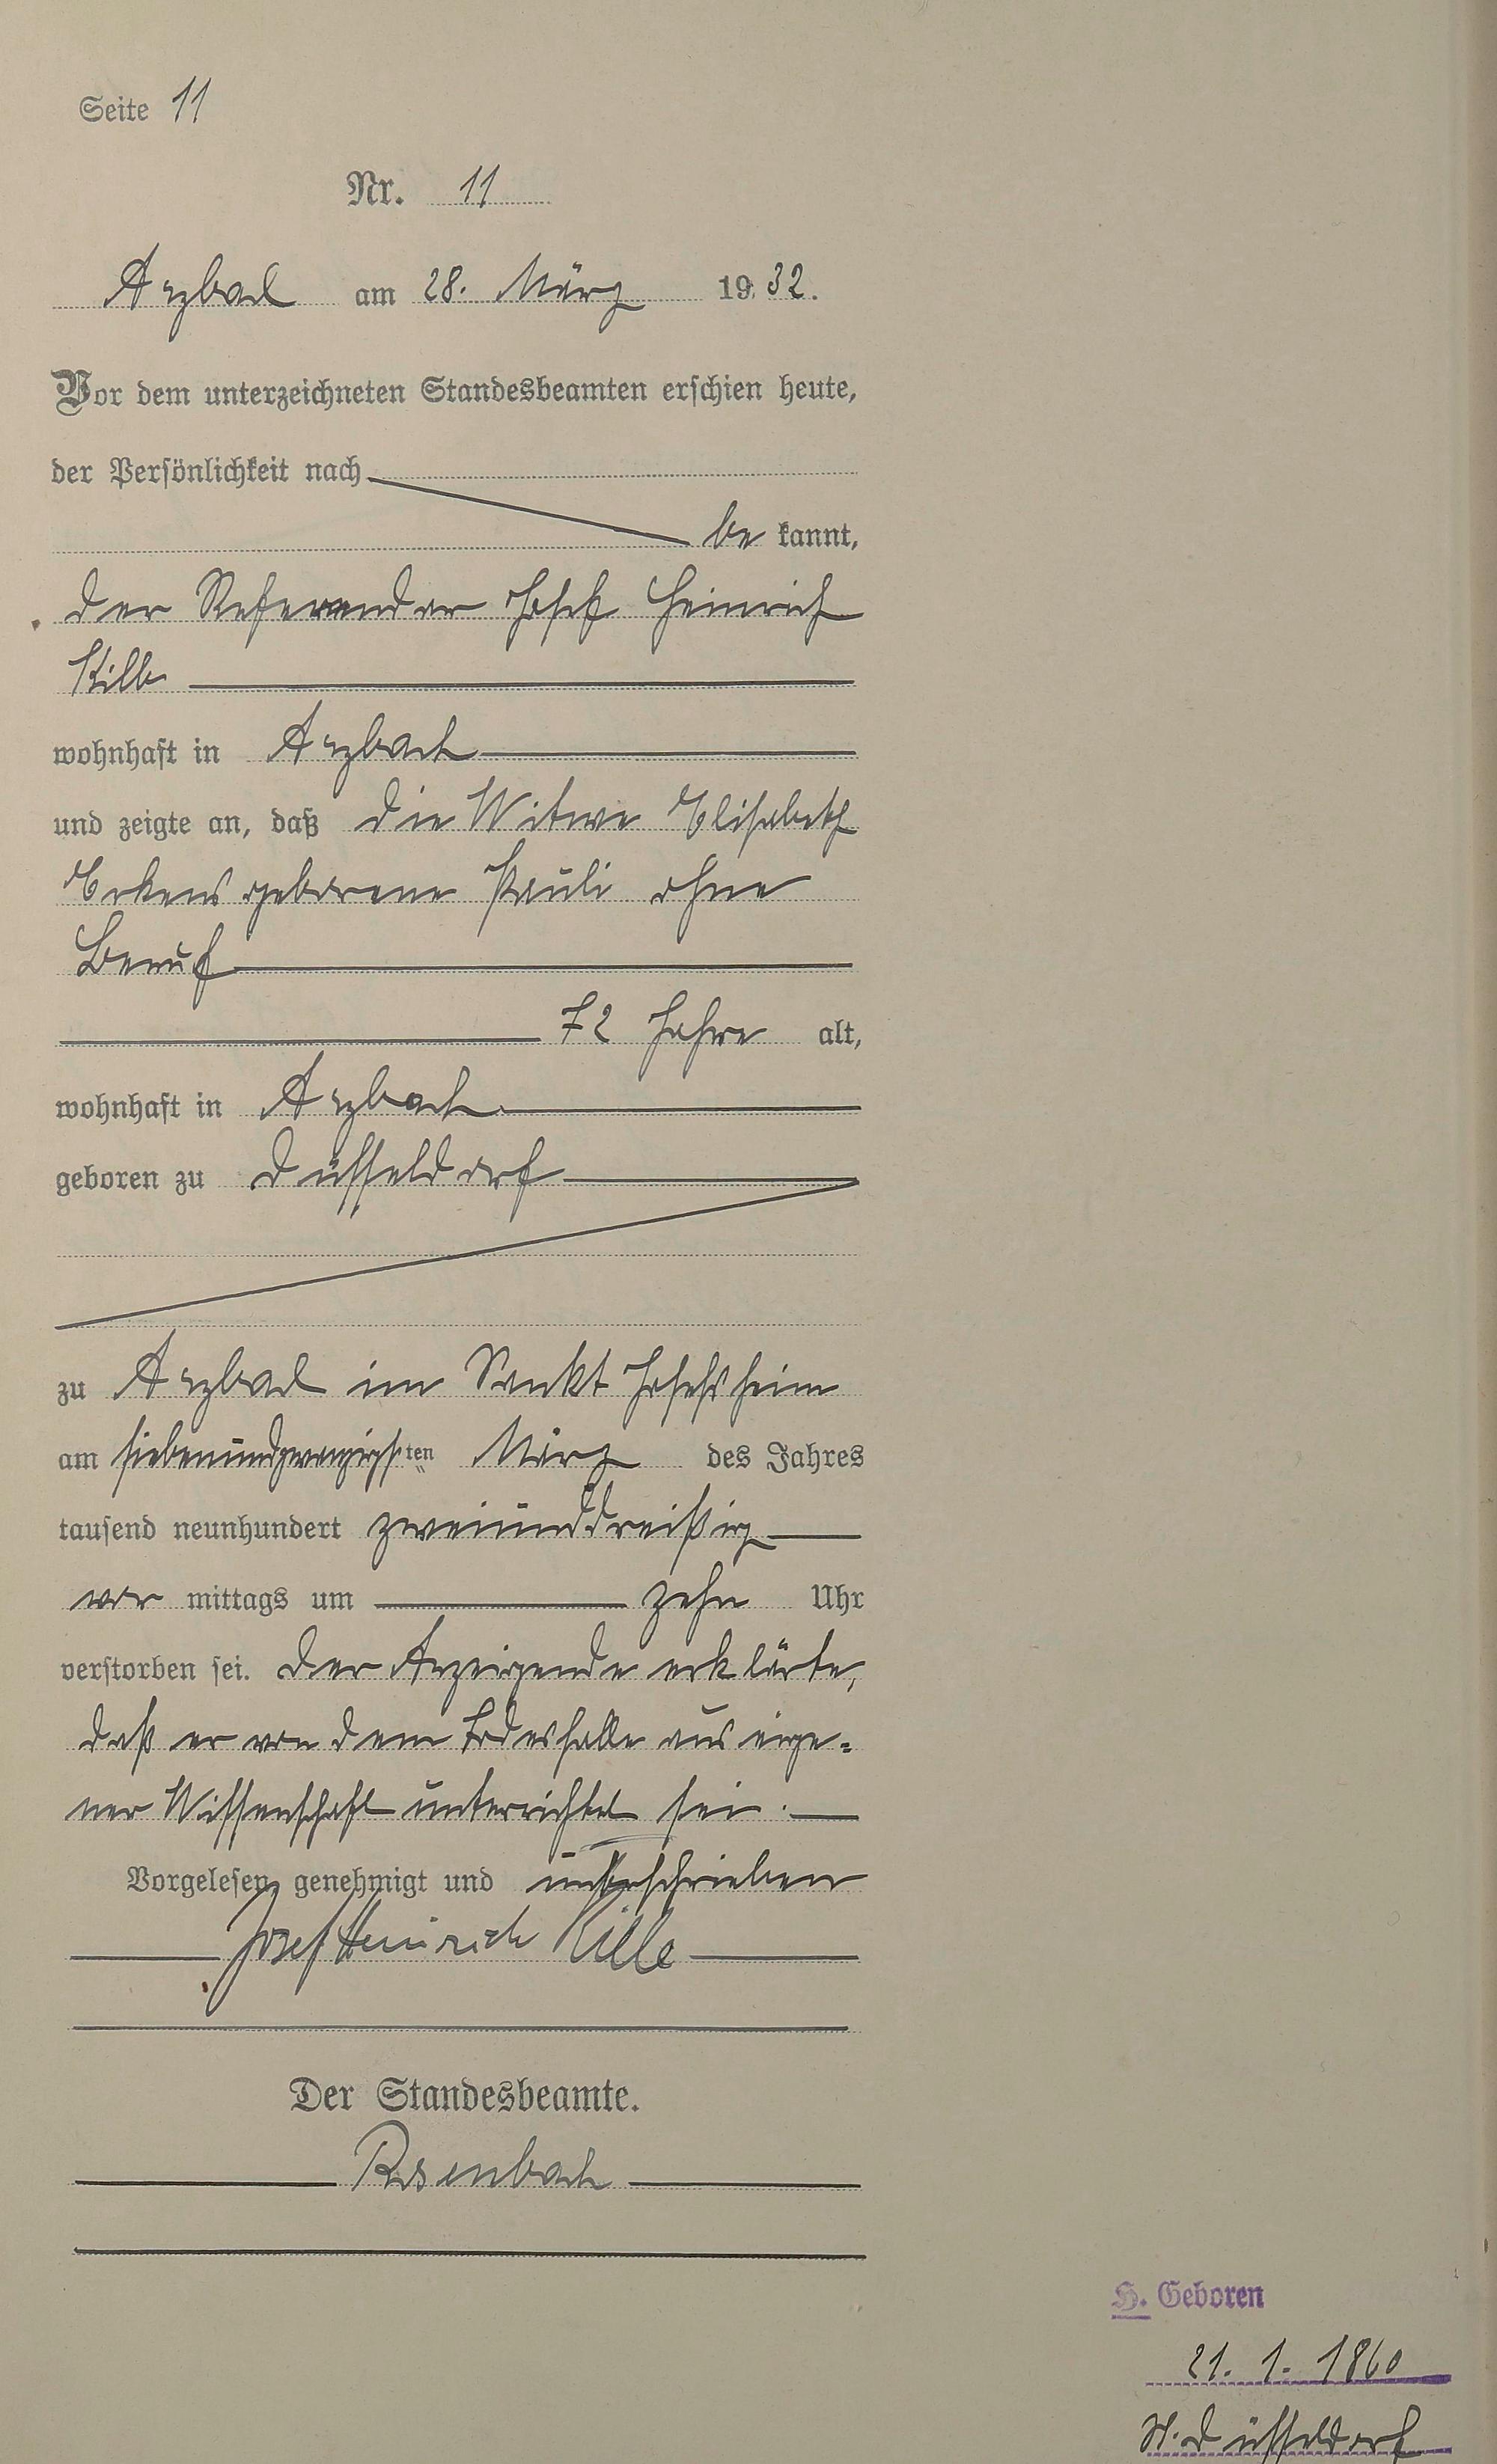 Seite 11
Nr. 11
Arzbach am 28. März 1932.
Vor dem unterzeichneten Standesbeamten erschien heute,
der Persönlichkeit nach
be kannt,
der Referendar Josef Heinrich
Kille
wohnhaft in Arzbach
und zeigte an, daß die Witwe Elisabeth
Erkens geborene Pauli ohne
Beruf
72 Jahre alt,
wohnhaft in Arzbach
geboren zu Düsseldorf
zu Arzbach im Sankt Josefsheim
am siebenundzwanzigsten März des Jahres
tausend neunhundert zweiunddreißig
vor mittags um zehn Uhr
verstorben sei. Der Anzeigende erklärte,
daß er von dem Todesfalle aus eige=
ner Wissenschaft unterrichtet sei.
Vorgelesen, genehmigt und unterschrieben
Josef Heinrich Kille
Der Standesbeamte.
Rosenbach
H. Geboren
21. 1. 1860
St. Düsseldorf